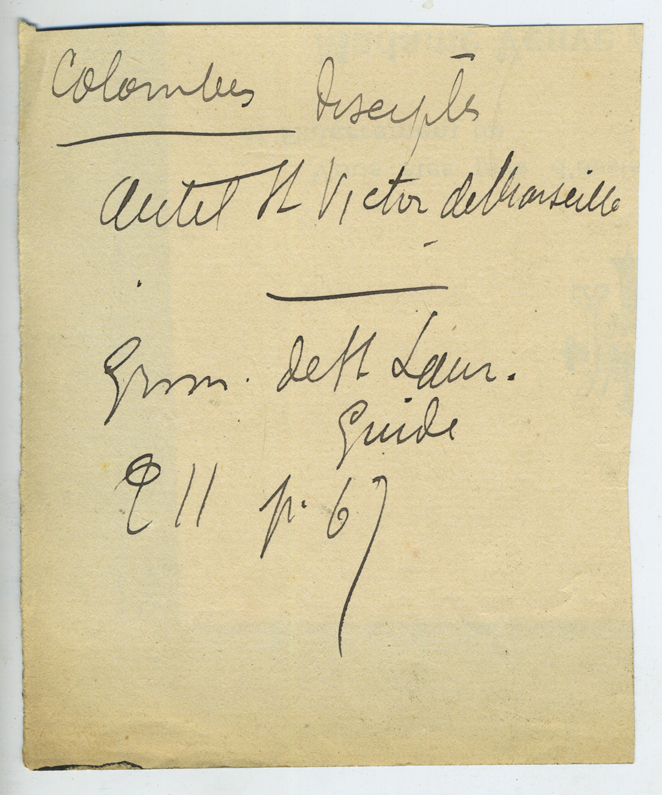 Colombes Disciples
Autel St Victor de Marseille
Grim. de St Laur.
Guide
T II p. 67